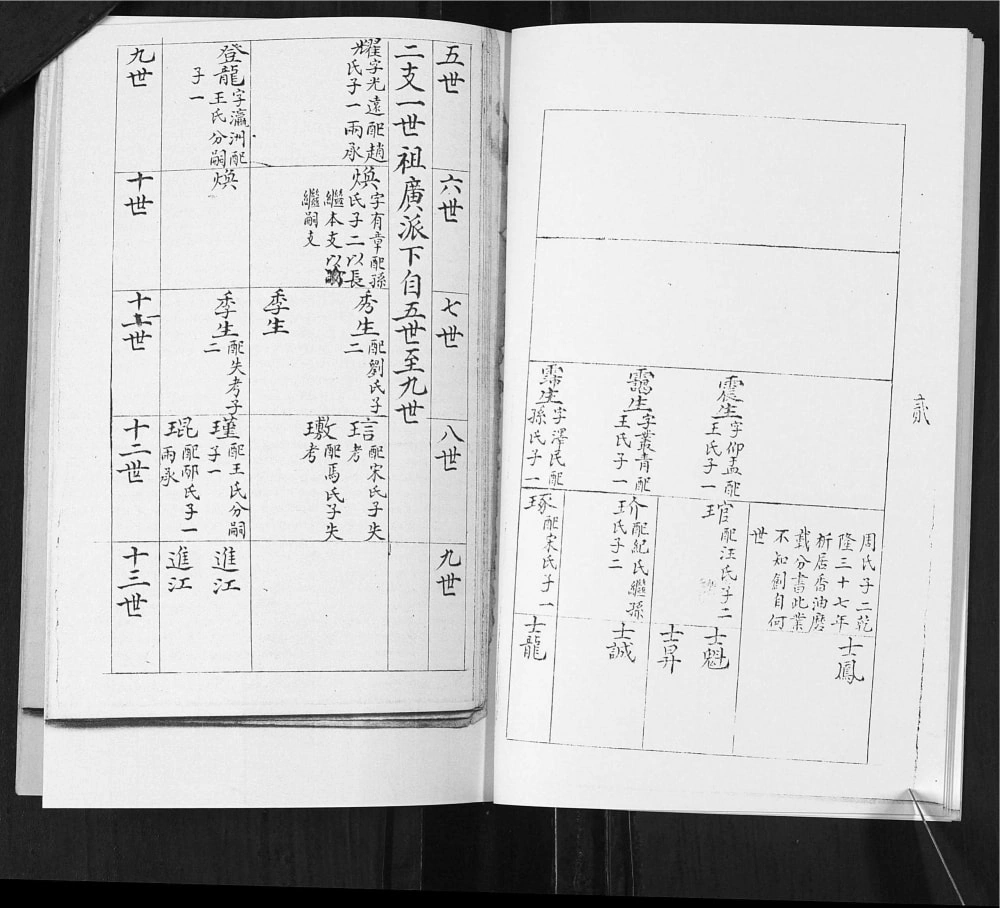 貳
周氏子二乾
隆三十七年
析居香油磨
載分書此業
不知創自何
世
士鳳
震生
字仰盂配
王氏子一
琯
配汪氏子二
士魁
士昇
靄生
字叢青配
王氏子一
玠
配紀氏繼孫
王氏子二
士誠
霈生
字澤民配
孫氏子一
琢
配宋氏子一
士龍
五世
六世
七世
八世
九世
二支一世祖廣派下自五世至九世
耀
字光遠配趙
尤氏子一兩承
煥
字有章配孫
氏子二以長
繼本支以
繼嗣支
秀生
配劉氏子
二
季生
琂
配宋氏子失
考
璷
配馬氏子失
考
登龍
字瀛洲配
王氏分嗣
子一
煥
季生
配失考子
二
瑾
配王氏分嗣
子一
琨
配邴氏子一
兩承
進江
進江
九世
十世
十一世
十二世
十三世